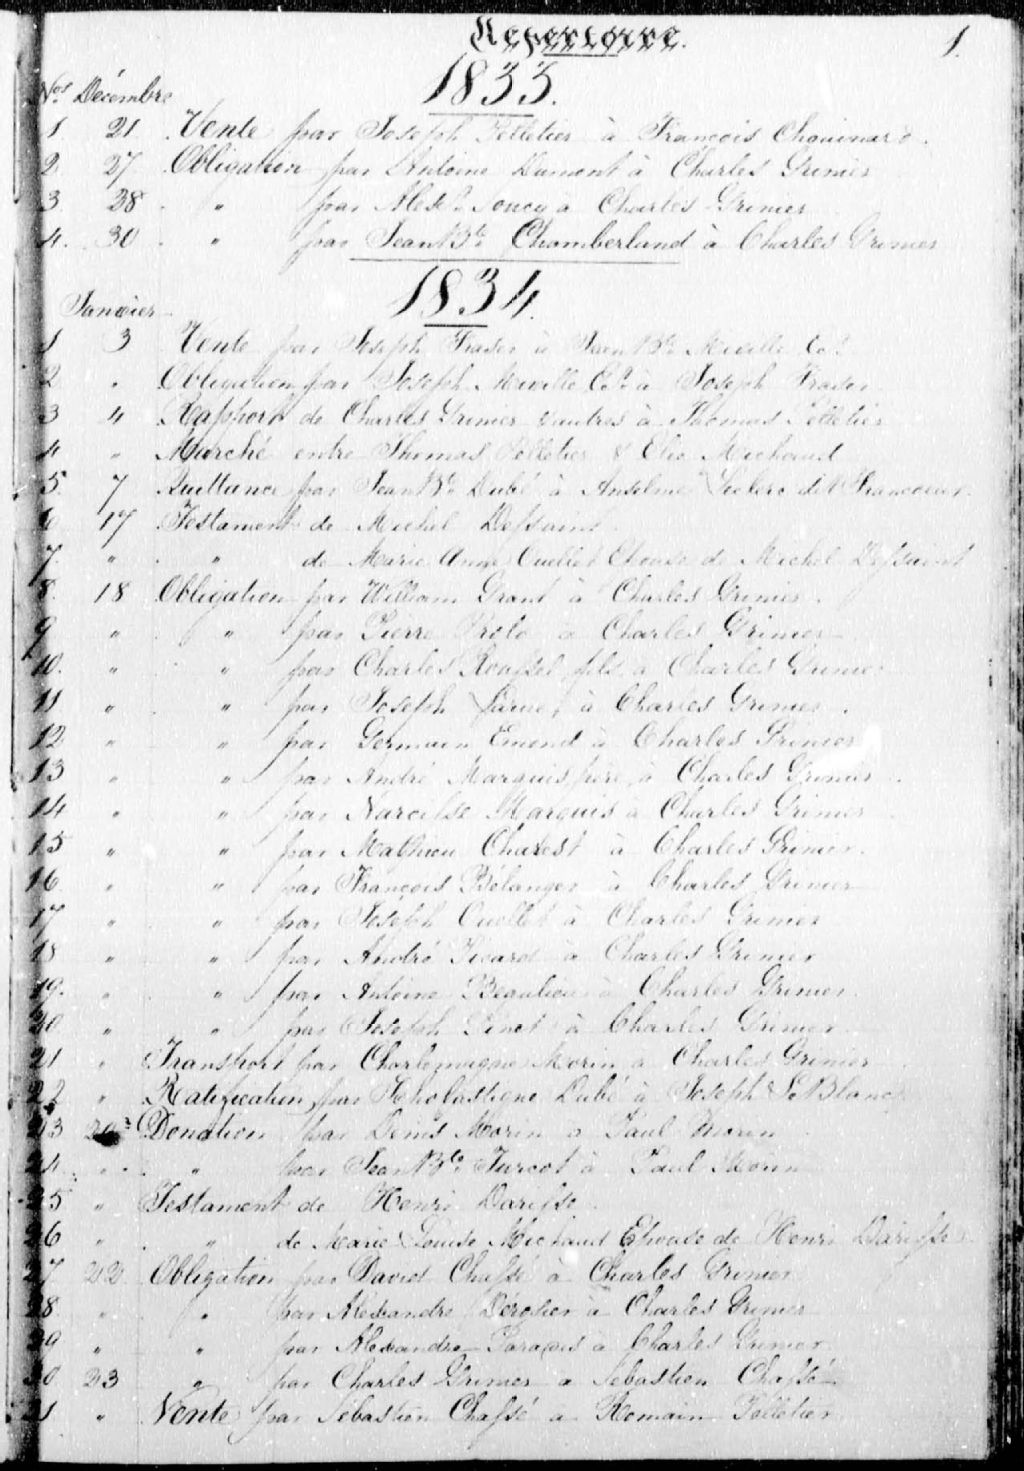 Répertoire. 1.
1833.
Nos Décembre
1 21 Vente par Joseph Pelletier à François Chouinard.
2 27 Obligation par Antoine Dumont à Charles Grenier
3 28 " par Alexre Soucy à Charles Grenier
4. 30 " par Jean Bte Chamberland à Charles Grenier
1834.
Janvier
1 3 Vente par Joseph Fraser à Jean Bte Miville
2 " Obligation par Joseph Miville à Joseph Fraser
3 4 Rapport de Charles Grenier & autres à Thomas Pelletier
4 " Marché entre Thomas Pelletier & Elie Michaud
5 7 Quittance par Jean Bte Dubé à Anselme Leclerc dit Francoeur
6 17 Testament de Michel Dessaint
7 " " de Marie Anne Ouellet Epouse de Michel Dessaint
8. 18 Obligation par William Grant à Charles Grenier.
9 " " par Pierre à Charles Grenier
10. " " par Charles Roussel fils à Charles Grenier
11 " " par Joseph à Charles Grenier.
12 " " par Germain Emond à Charles Grenier
13 " " par André Marquis père, à Charles Grenier.
14 " " par Narcisse Marquis à Charles Grenier
15 " " par Mathieu Charest à Charles Grenier.
16. " " par François Bélanger à Charles Grenier
17 " " par Joseph Ouellet à Charles Grenier
18 " " par André Picard à Charles Grenier
19. " " par Antoine Beaulieu à Charles Grenier.
20 " " par Joseph Pinet à Charles Grenier
21 " Transport par Charlemagne Morin à Charles Grenier
22 " Ratification par Scholastique Dubé à Joseph LeBlanc
23 20 Donation par Denis Morin à Paul Morin
24. " " par Jean Bte Turcot à Paul Morin
25 " Testament de Henri Darisse
26 " " de Marie Louise Michaud Epouse de Henri Darisse
27 22 Obligation par David Chassé à Charles Grenier
28. " " par Alexandre Dérosier à Charles Grenier
29 " " par Alexandre Paradis à Charles Grenier
30 23 " par Charles Grenier à Sébastien Chassé
31 " Vente par Sébastien Chassé à Romain Pelletier